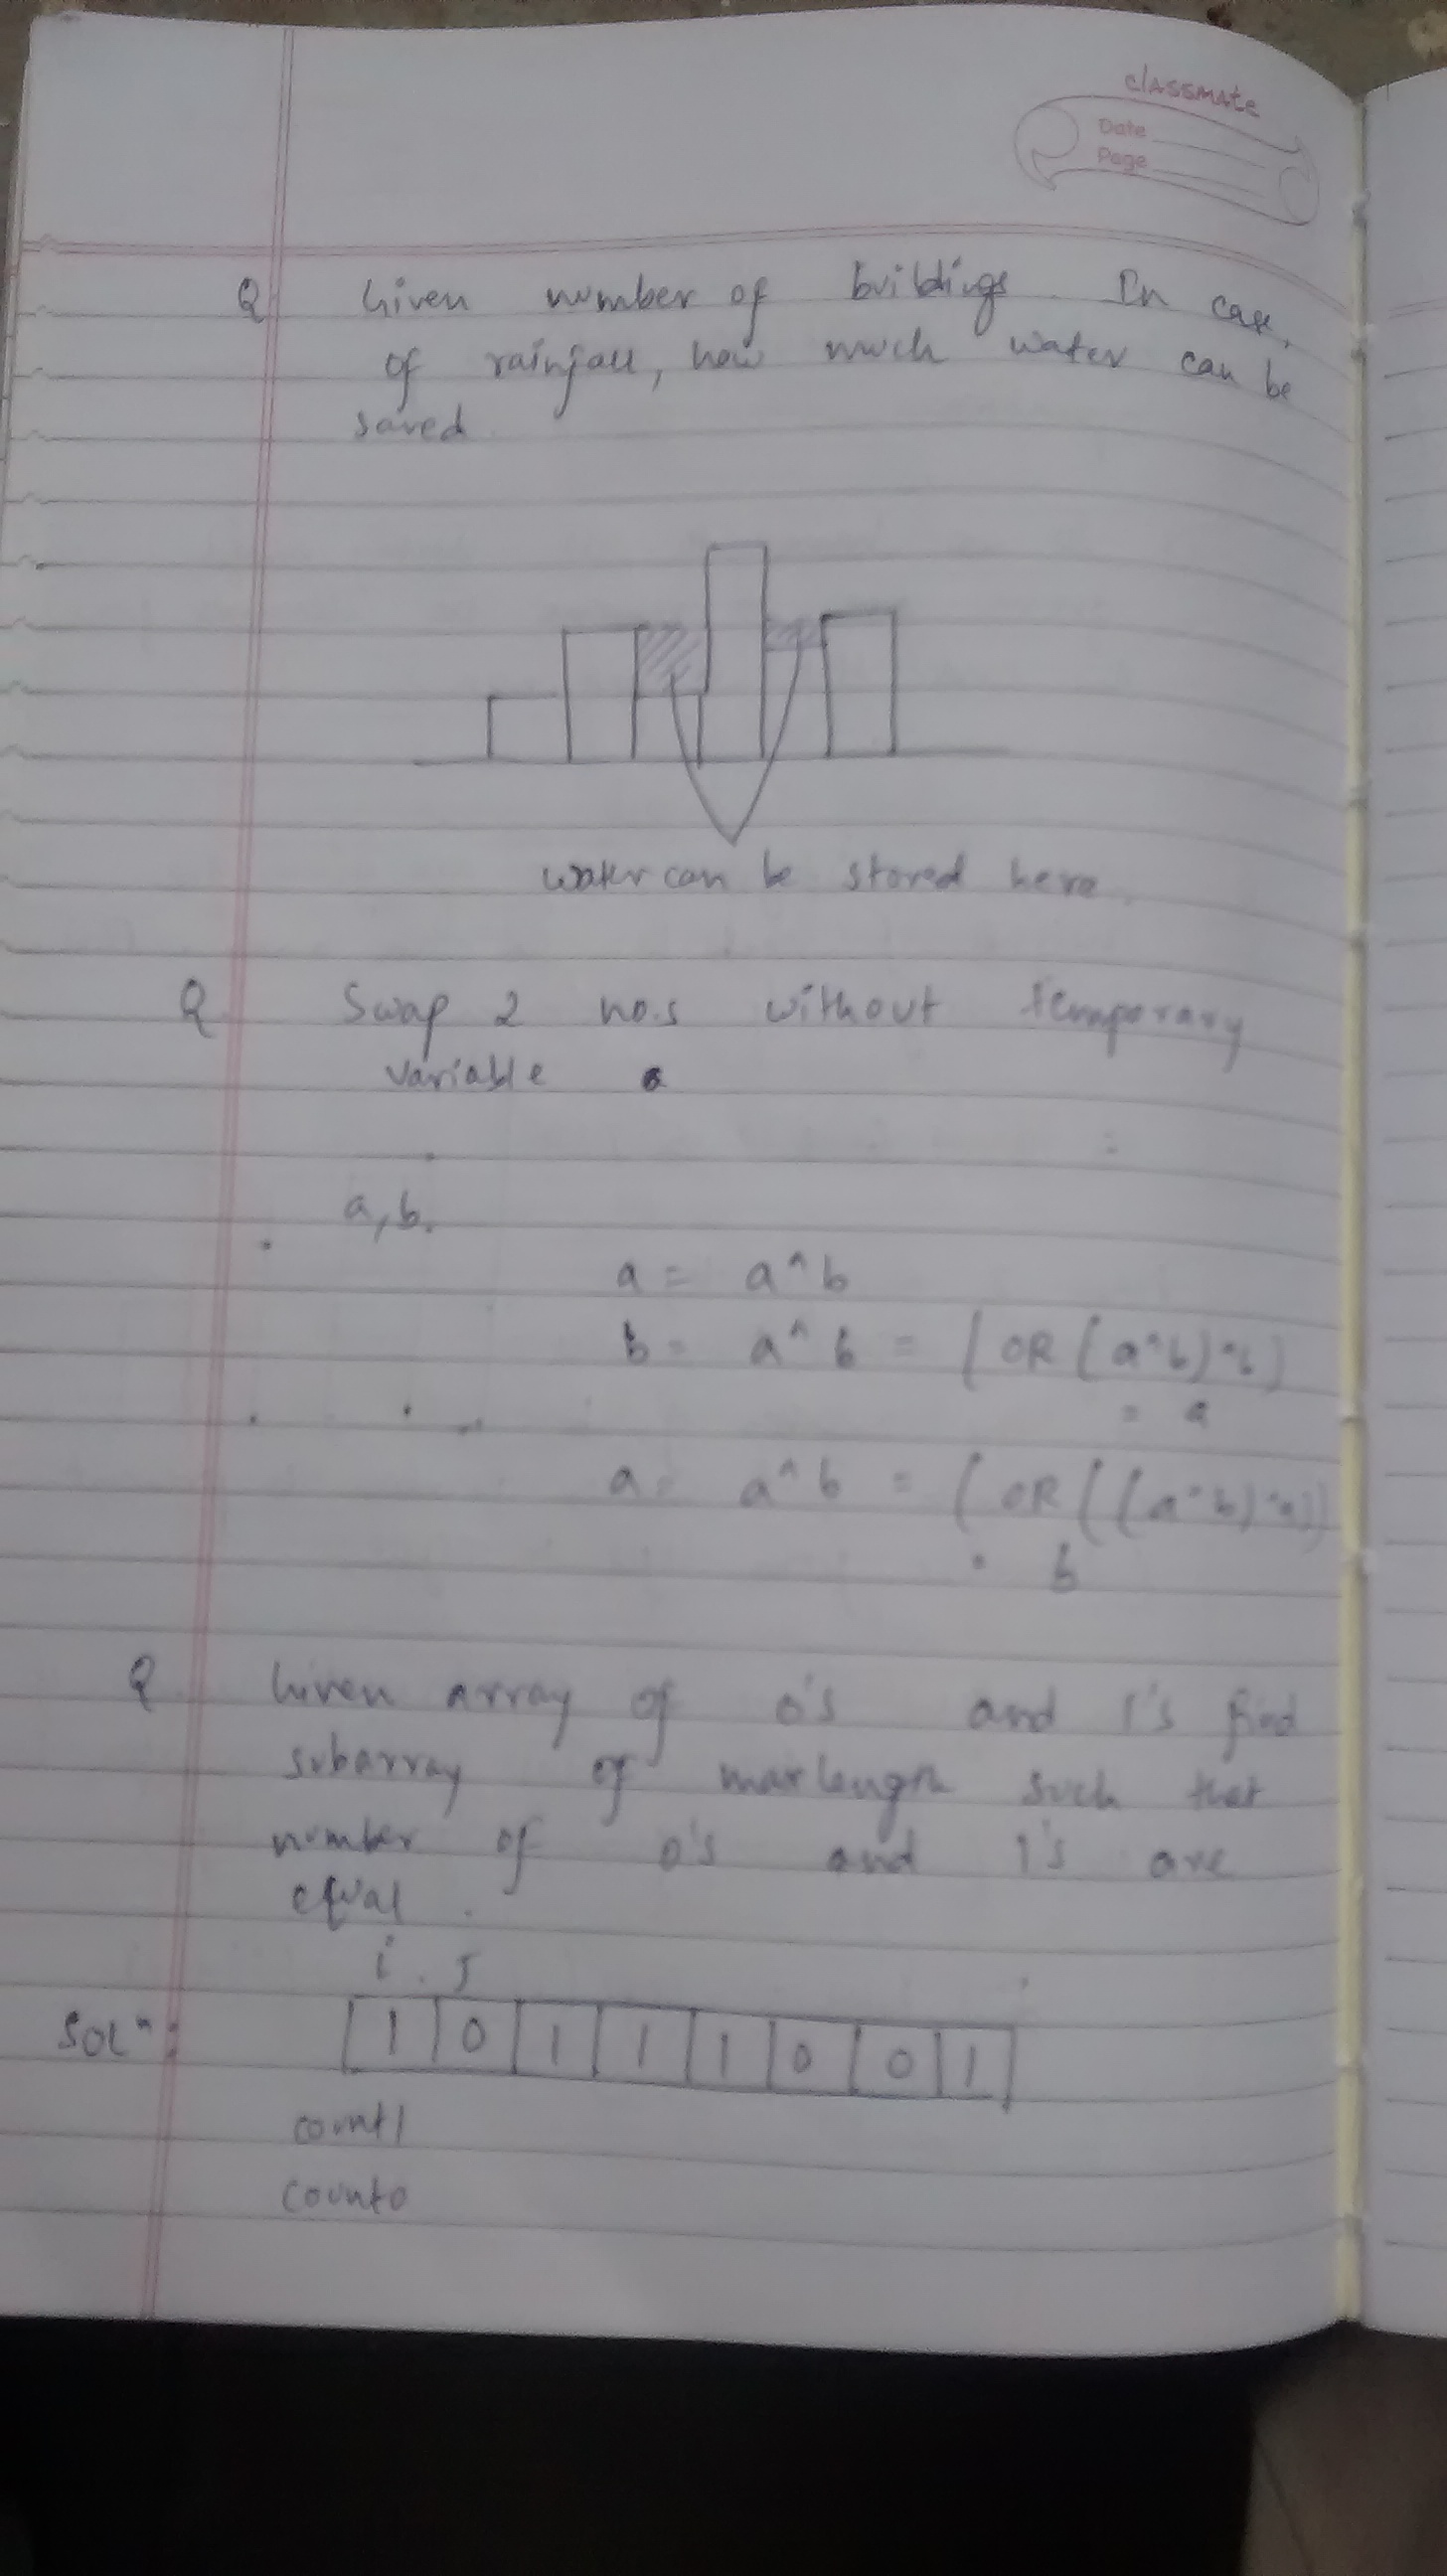 classmate
Date
Page
Q Given number of buildings. In case
of rainfall, how much water can be
saved.
water can be stored here.
Q Swap 2 no.s without temporary
variable
a, b.
a = a^b
b = a^b = (OR (a^b)^b)
= a
a = a^b = (OR ((a^b)^a))
= b
Q Given array of 0's and 1's find
subarray of max length such that
number of 0's and 1's are
equal.
i . j
SOLn: 1 0 1 1 1 0 0 1
count1
count0